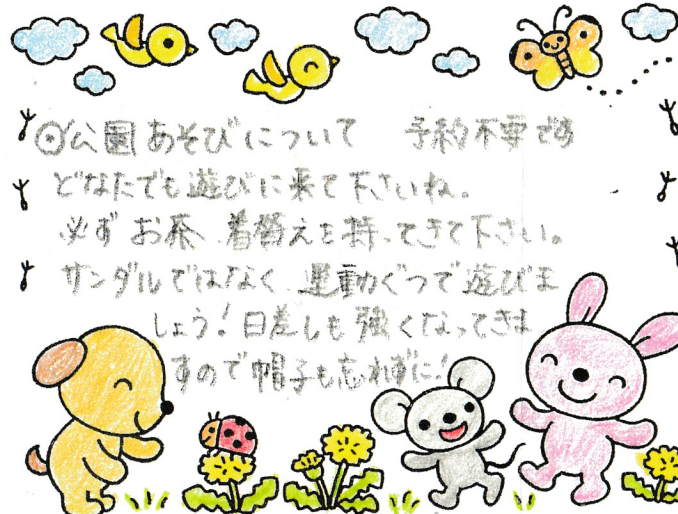 ⊙公園あそびについて 予約不要です
どなたでも遊びに来て下さいね。
必ずお茶、着替えを持ってきて下さい。
サンダルではなく、運動ぐつで遊びま
しょう!日差しも強くなってきま
すので帽子も忘れずに!